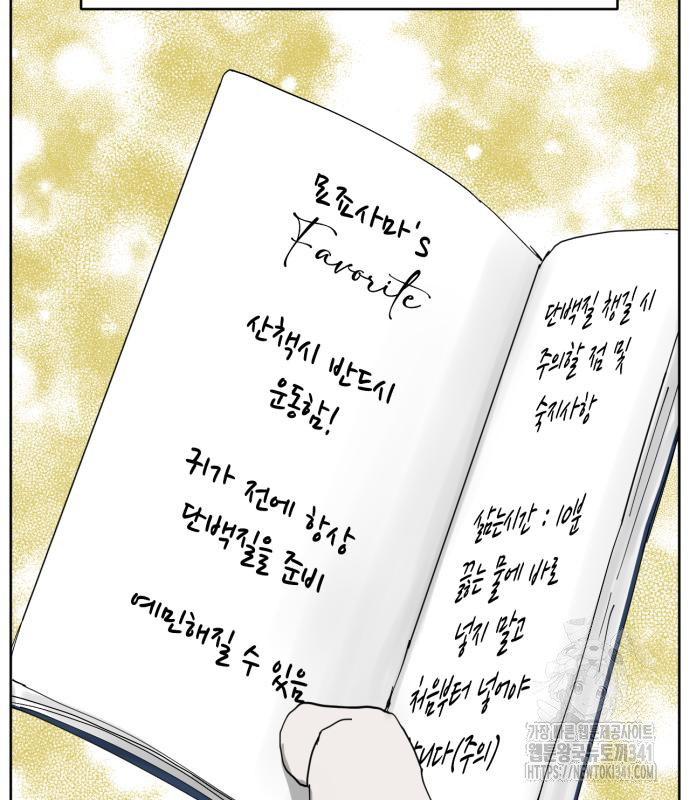 묘죠사마's
Favorite
산책시 반드시
운동함!
귀가 전에 항상
단백질을 준비
예민해질 수 있음
단백질 챙길 시
주의할 점 및
숙지사항
삶는시간 : 10분
끓는 물에 바로
넣지 말고
처음부터 넣어야
합니다(주의)
가장 빠른 웹툰제공사이트
웹툰왕국뉴토끼341
HTTPS://NEWTOKI341.COM